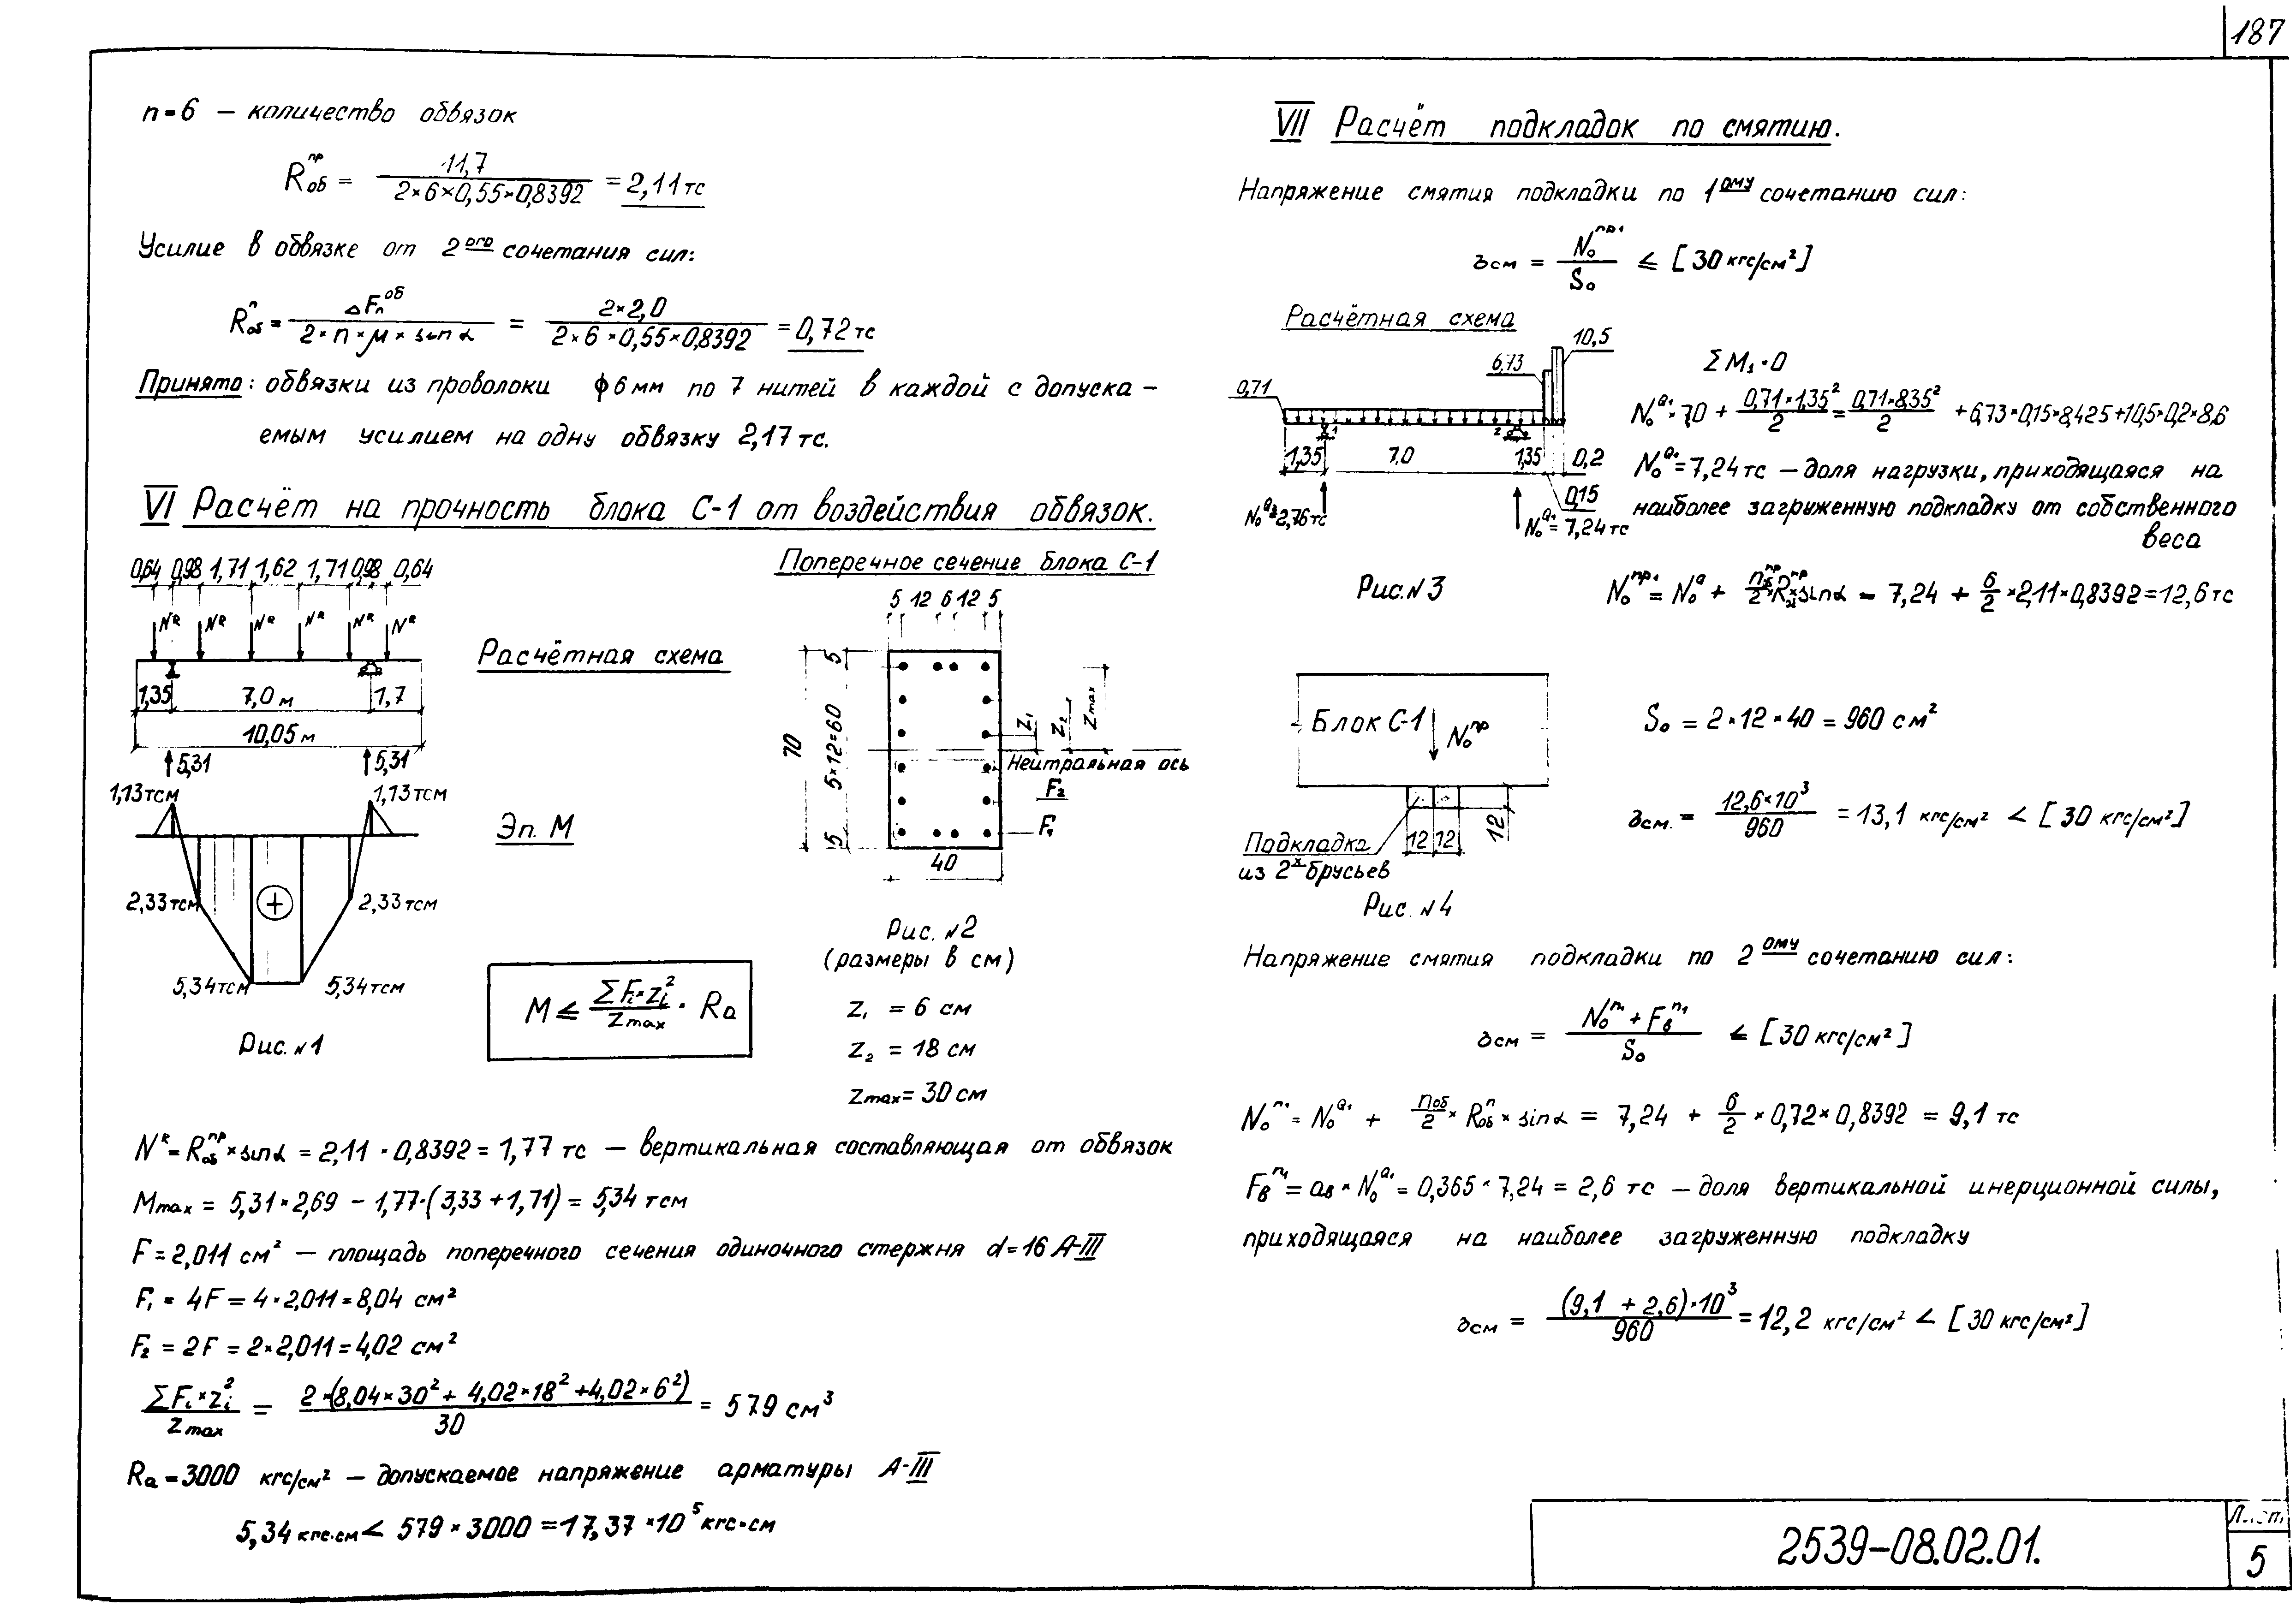 187
n=6 — количество обвязок
Rоб^пр = 11,7 / (2×6×0,55×0,8392) = 2,11 тс
Усилие в обвязке от 2ого сочетания сил:
Rоб^п = ΔFп^об / (2×n×μ×sinα) = 2×2,0 / (2×6×0,55×0,8392) = 0,72 тс
Принято: обвязки из проволоки ф6мм по 7 нитей в каждой с допуска-
емым усилием на одну обвязку 2,17 тс.
VI Расчёт на прочность блока С-1 от воздействия обвязок.
0,64 0,98 1,71 1,62 1,71 0,98 0,64
N^R N^R N^R N^R N^R N^R
Расчётная схема
1,35 7,0 м 1,7
10,05 м
5,31 5,31
1,13 тсм 1,13 тсм
Эп. М
2,33 тсм 2,33 тсм
5,34 тсм 5,34 тсм
Рис. №1
M ≤ ΣFi×zi² / Zmax · Ra
Поперечное сечение блока С-1
5 12 6 12 5
5
5×12=60
5
70
40
Z₁ Z₂ Zmax
Нейтральная ось
F₂
F₁
Рис. №2
(размеры в см)
Z₁ = 6 см
Z₂ = 18 см
Zmax = 30 см
N^R = Rоб^пр × sinα = 2,11 · 0,8392 = 1,77 тс — вертикальная составляющая от обвязок
Mmax = 5,31×2,69 − 1,77·(3,33 + 1,71) = 5,34 тсм
F = 2,011 см² — площадь поперечного сечения одиночного стержня d=16 А-III
F₁ = 4F = 4·2,011 = 8,04 см²
F₂ = 2F = 2×2,011 = 4,02 см²
ΣFi×zi² / Zmax = 2×(8,04×30² + 4,02×18² + 4,02×6²) / 30 = 579 см³
Ra = 3000 кгс/см² — допускаемое напряжение арматуры А-III
5,34 кгс·см < 579×3000 = 17,37×10⁵ кгс·см
VII Расчёт подкладок по смятию.
Напряжение смятия подкладки по 1ому сочетанию сил:
σсм = N₀^пр₁ / S₀ ≤ [30 кгс/см²]
Расчётная схема
0,71 6,73 10,5
1 2
1,35 7,0 1,35 0,2
0,15
N₀^Q₂ = 2,76 тс
N₀^Q₁ = 7,24 тс
Рис. №3
ΣM₁ = 0
N₀^Q₁ · 7,0 + 0,71×1,35² / 2 = 0,71×8,35² / 2 + 6,73×0,15×8,425 + 10,5×0,2×8,6
N₀^Q₁ = 7,24 тс — доля нагрузки, приходящаяся на
наиболее загруженную подкладку от собственного
веса
N₀^пр₁ = N₀^Q + nоб^пр / 2 × Rоб^пр × sinα = 7,24 + 6/2 × 2,11×0,8392 = 12,6 тс
Блок С-1
N₀^пр
Подкладка
из 2х брусьев
12 12
12
Рис. №4
S₀ = 2×12×40 = 960 см²
σсм. = 12,6×10³ / 960 = 13,1 кгс/см² < [30 кгс/см²]
Напряжение смятия подкладки по 2ому сочетанию сил:
σсм = (N₀^п₁ + Fв^п₁) / S₀ ≤ [30 кгс/см²]
N₀^п₁ = N₀^Q₁ + nоб/2 × Rоб^п × sinα = 7,24 + 6/2 × 0,72×0,8392 = 9,1 тс
Fв^п₁ = aв × N₀^Q₁ = 0,365×7,24 = 2,6 тс — доля вертикальной инерционной силы,
приходящаяся на наиболее загруженную подкладку
σсм = (9,1 + 2,6)·10³ / 960 = 12,2 кгс/см² < [30 кгс/см²]
2539-08.02.01.
Лист
5